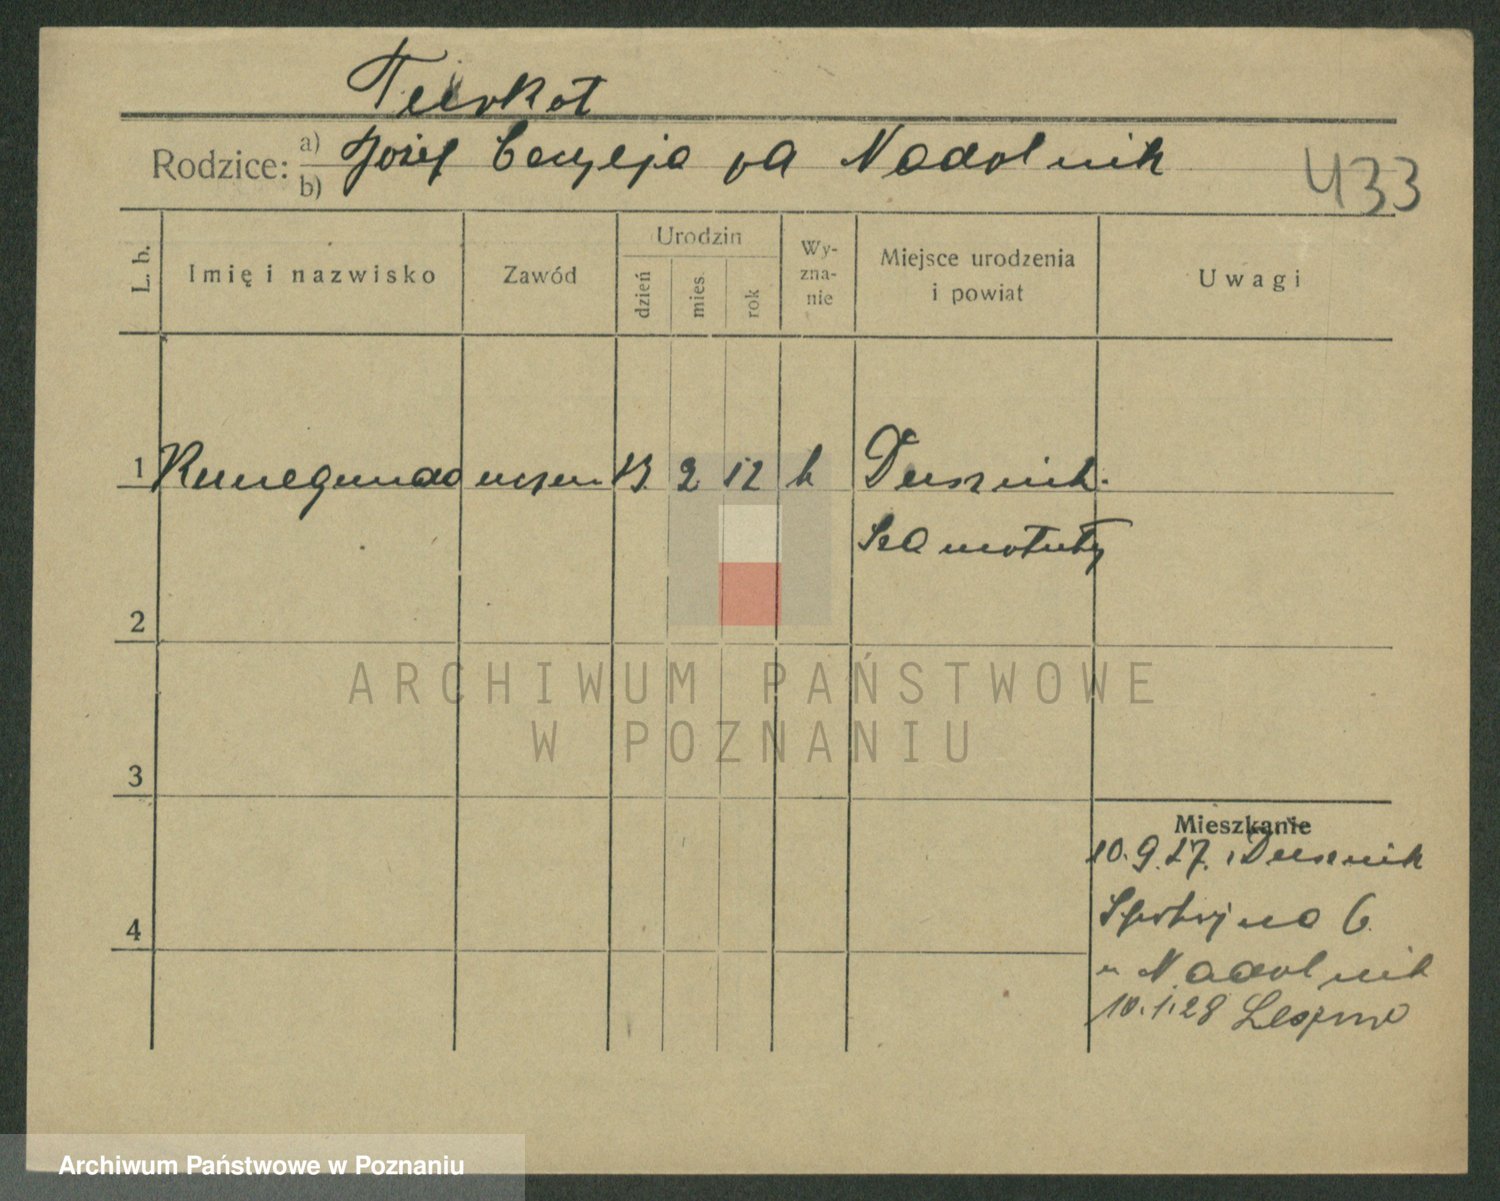 Turkot
Rodzice: a) Józef Cecylja zd Nadolnik
b)
433
L. b.
Imię i nazwisko
Zawód
Urodzin
dzień
mies.
rok
Wy-
zna-
nie
Miejsce urodzenia
i powiat
Uwagi
1 Kunegunda uczen. 13. 2 12 k Dusznik.
Szamotuły
2
ARCHIWUM PAŃSTWOWE
W POZNANIU
3
Mieszkanie
10.9.27. Dusznik
na 6
4
u Nadolnik
10.1.28 Leszno
Archiwum Państwowe w Poznaniu